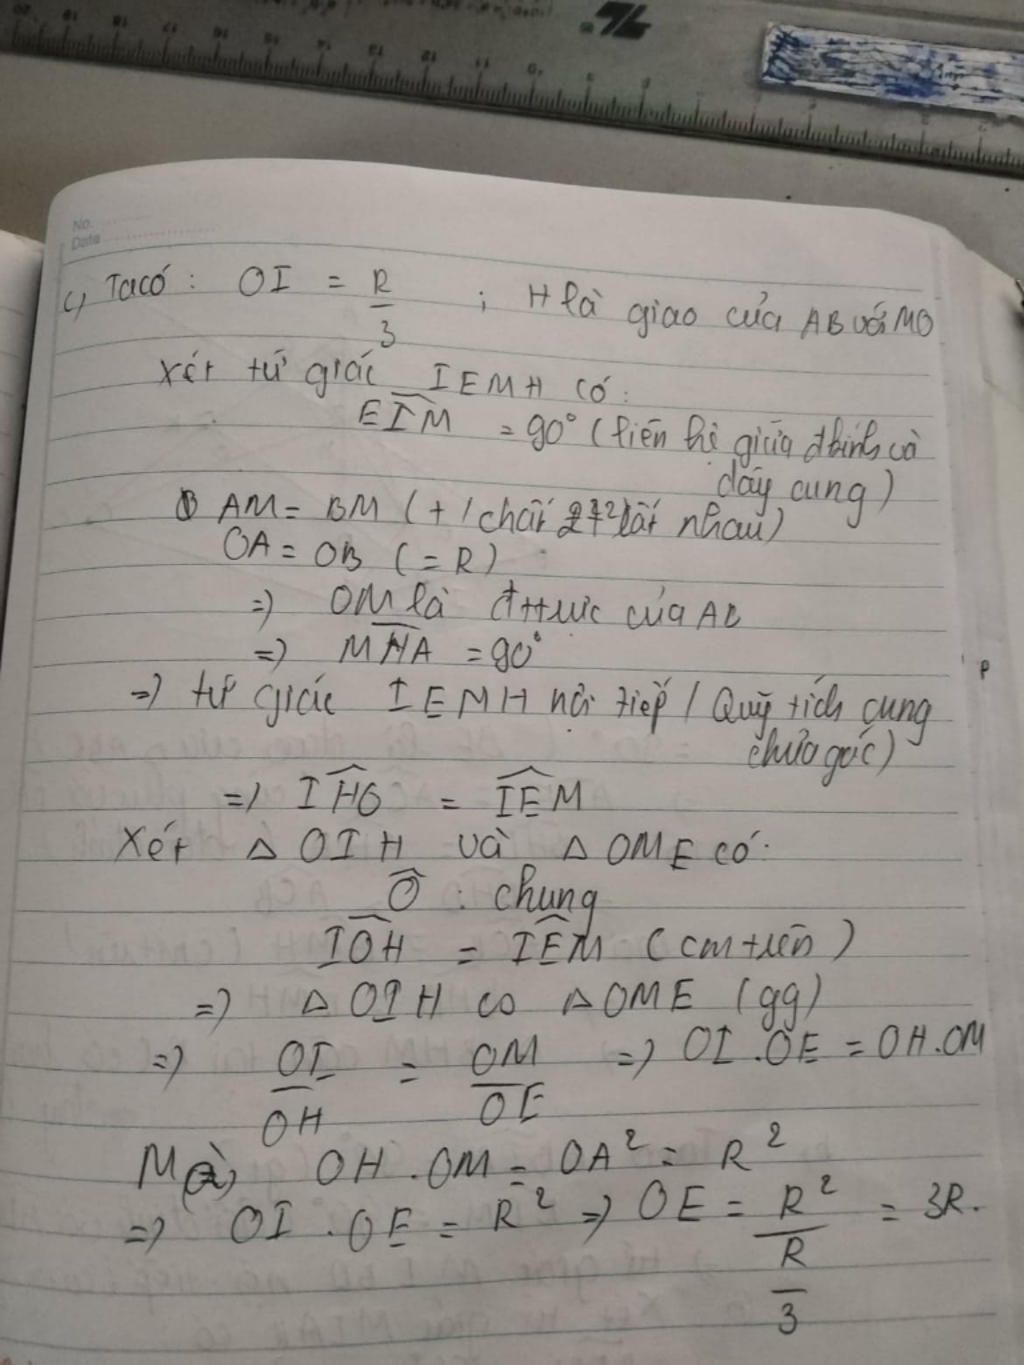 No.
Date
c, Ta có : OI = R/3 ; H là giao của AB với MO
Xét tứ giác IEMH có :
EIM = 90° ( liên hệ giữa đkính và
dây cung )
AM = BM ( t/chất 2 cắt nhau )
OA = OB ( = R )
=> OM là đttrực của AB
=> MHA = 90°
=> tứ giác IEMH nội tiếp ( Quỹ tích cung
chứa góc )
=> IHO = IEM
Xét △ OIH và △ OME có :
Ô : chung
IOH = IEM ( cm trên )
=> △ OIH ∽ △ OME (gg)
=> OI/OH = OM/OE => OI . OE = OH . OM
Mà OH . OM = OA² = R²
=> OI . OE = R² => OE = R²/(R/3) = 3R.